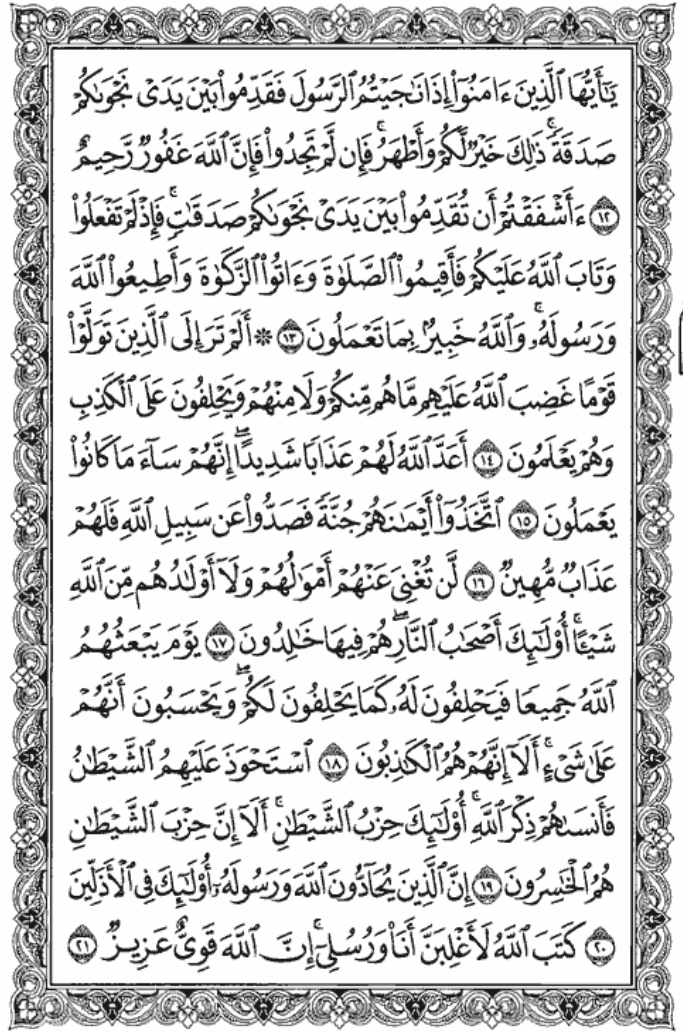 يَٰٓأَيُّهَا ٱلَّذِينَ ءَامَنُوٓا۟ إِذَا نَٰجَيْتُمُ ٱلرَّسُولَ فَقَدِّمُوا۟ بَيْنَ يَدَىْ نَجْوَىٰكُمْ
صَدَقَةً ۚ ذَٰلِكَ خَيْرٌ لَّكُمْ وَأَطْهَرُ ۚ فَإِن لَّمْ تَجِدُوا۟ فَإِنَّ ٱللَّهَ غَفُورٌ رَّحِيمٌ
١٢ ءَأَشْفَقْتُمْ أَن تُقَدِّمُوا۟ بَيْنَ يَدَىْ نَجْوَىٰكُمْ صَدَقَٰتٍ ۚ فَإِذْ لَمْ تَفْعَلُوا۟
وَتَابَ ٱللَّهُ عَلَيْكُمْ فَأَقِيمُوا۟ ٱلصَّلَوٰةَ وَءَاتُوا۟ ٱلزَّكَوٰةَ وَأَطِيعُوا۟ ٱللَّهَ
وَرَسُولَهُۥ ۚ وَٱللَّهُ خَبِيرٌۢ بِمَا تَعْمَلُونَ ١٣ ۞ أَلَمْ تَرَ إِلَى ٱلَّذِينَ تَوَلَّوْا۟
قَوْمًا غَضِبَ ٱللَّهُ عَلَيْهِم مَّا هُم مِّنكُمْ وَلَا مِنْهُمْ وَيَحْلِفُونَ عَلَى ٱلْكَذِبِ
وَهُمْ يَعْلَمُونَ ١٤ أَعَدَّ ٱللَّهُ لَهُمْ عَذَابًا شَدِيدًا ۖ إِنَّهُمْ سَآءَ مَا كَانُوا۟
يَعْمَلُونَ ١٥ ٱتَّخَذُوٓا۟ أَيْمَٰنَهُمْ جُنَّةً فَصَدُّوا۟ عَن سَبِيلِ ٱللَّهِ فَلَهُمْ
عَذَابٌ مُّهِينٌ ١٦ لَّن تُغْنِىَ عَنْهُمْ أَمْوَٰلُهُمْ وَلَآ أَوْلَٰدُهُم مِّنَ ٱللَّهِ
شَيْـًٔا ۚ أُو۟لَٰٓئِكَ أَصْحَٰبُ ٱلنَّارِ ۖ هُمْ فِيهَا خَٰلِدُونَ ١٧ يَوْمَ يَبْعَثُهُمُ
ٱللَّهُ جَمِيعًا فَيَحْلِفُونَ لَهُۥ كَمَا يَحْلِفُونَ لَكُمْ ۖ وَيَحْسَبُونَ أَنَّهُمْ
عَلَىٰ شَىْءٍ ۚ أَلَآ إِنَّهُمْ هُمُ ٱلْكَٰذِبُونَ ١٨ ٱسْتَحْوَذَ عَلَيْهِمُ ٱلشَّيْطَٰنُ
فَأَنسَىٰهُمْ ذِكْرَ ٱللَّهِ ۚ أُو۟لَٰٓئِكَ حِزْبُ ٱلشَّيْطَٰنِ ۚ أَلَآ إِنَّ حِزْبَ ٱلشَّيْطَٰنِ
هُمُ ٱلْخَٰسِرُونَ ١٩ إِنَّ ٱلَّذِينَ يُحَآدُّونَ ٱللَّهَ وَرَسُولَهُۥٓ أُو۟لَٰٓئِكَ فِى ٱلْأَذَلِّينَ
٢٠ كَتَبَ ٱللَّهُ لَأَغْلِبَنَّ أَنَا۠ وَرُسُلِىٓ ۚ إِنَّ ٱللَّهَ قَوِىٌّ عَزِيزٌ ٢١